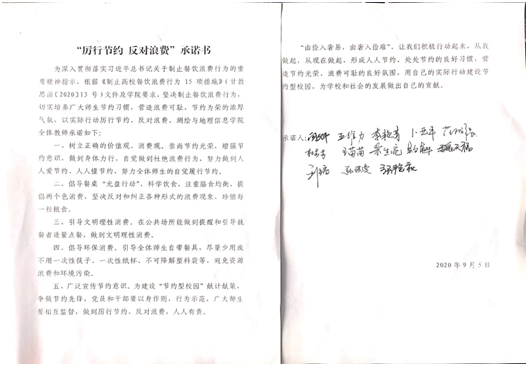 “厉行节约 反对浪费”承诺书
为深入贯彻落实习近平总书记关于制止餐饮浪费行为的重
要精神指示，根据《制止高校餐饮浪费行为 15 项措施》（甘教
思函〔2020〕13 号）文件及学院要求，坚决制止餐饮浪费行为，
切实培养广大师生节约习惯，营造浪费可耻、节约为荣的浓厚
气氛，以实际行动厉行节约、反对浪费。测绘与地理信息学院
全体教师承诺如下：
一、树立正确的价值观、消费观。崇尚节约光荣，增强节
约意识。做到身体力行，自觉做到杜绝浪费行为，努力做到人
人爱节约、人人懂节约，努力全体师生的自觉履行节约。
二、倡导餐桌“光盘行动”，科学饮食，注重膳食均衡，提
倡两个色消费，坚决反对和纠正各种形式的浪费现象，珍惜每
一粒粮食。
三、引导文明理性消费。在公共场所能做到提醒和引导就
餐者适量点餐，做到文明理性消费。
四、倡导环保消费。引导全体师生自带餐具，尽量少用或
不用一次性筷子、一次性纸杯、不可降解塑料袋等，避免资源
浪费和环境污染。
五、广泛宣传节约意识。为建设“节约型校园”献计献策，
争做节约先锋，党员和干部要以身作则，行为示范，广大师生
要相互监督，做到厉行节约，反对浪费，人人有责。
“由俭入奢易，由奢入俭难”，让我们积极行动起来，从我
做起，从现在做起，形成人人节约、处处节约的良好习惯，营
造节约光荣、浪费可耻的良好氛围，用自己的实际行动建设节
约型校园，为学校和社会的发展做出自己的贡献。
承诺人：
2020 年 9 月 5 日